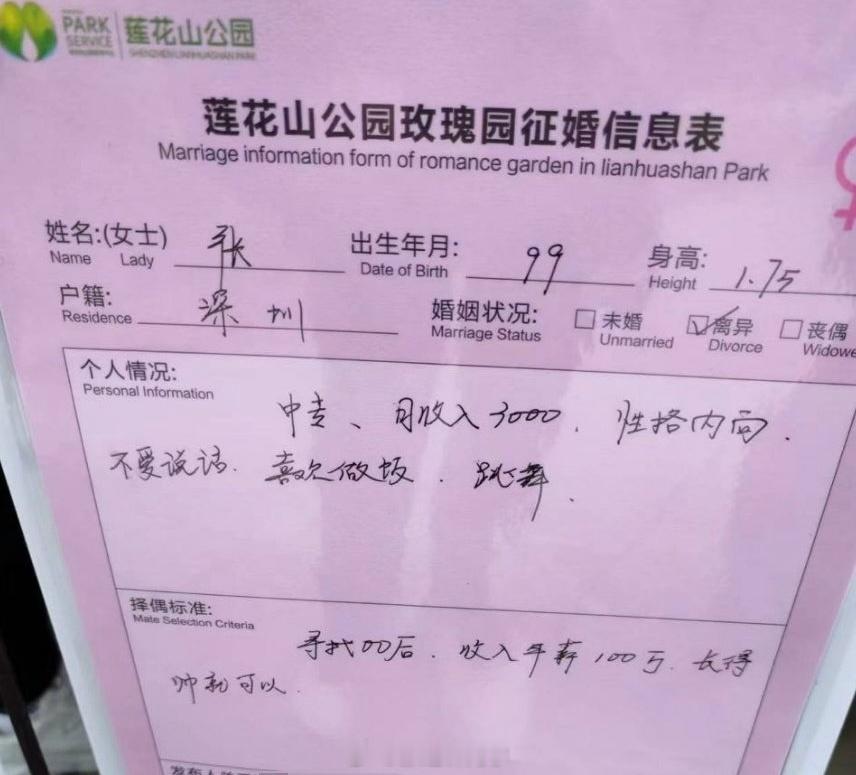 PARK 莲花山公园
SERVICE SHENZHEN LIANHUASHAN PARK
莲花山公园玫瑰园征婚信息表
Marriage information form of romance garden in lianhuashan Park
姓名:(女士) 张 出生年月: 99 身高: 1.75
Name Lady Date of Birth Height
户籍: 深圳 婚姻状况: 未婚 离异 丧偶
Residence Marriage Status Unmarried Divorce Widowe
个人情况:
Personal Information
中专、月收入3000.性格内向.
不爱说话.喜欢做饭.跳舞.
择偶标准:
Mate Selection Criteria
寻找00后.收入年薪100万.长得
帅就可以.